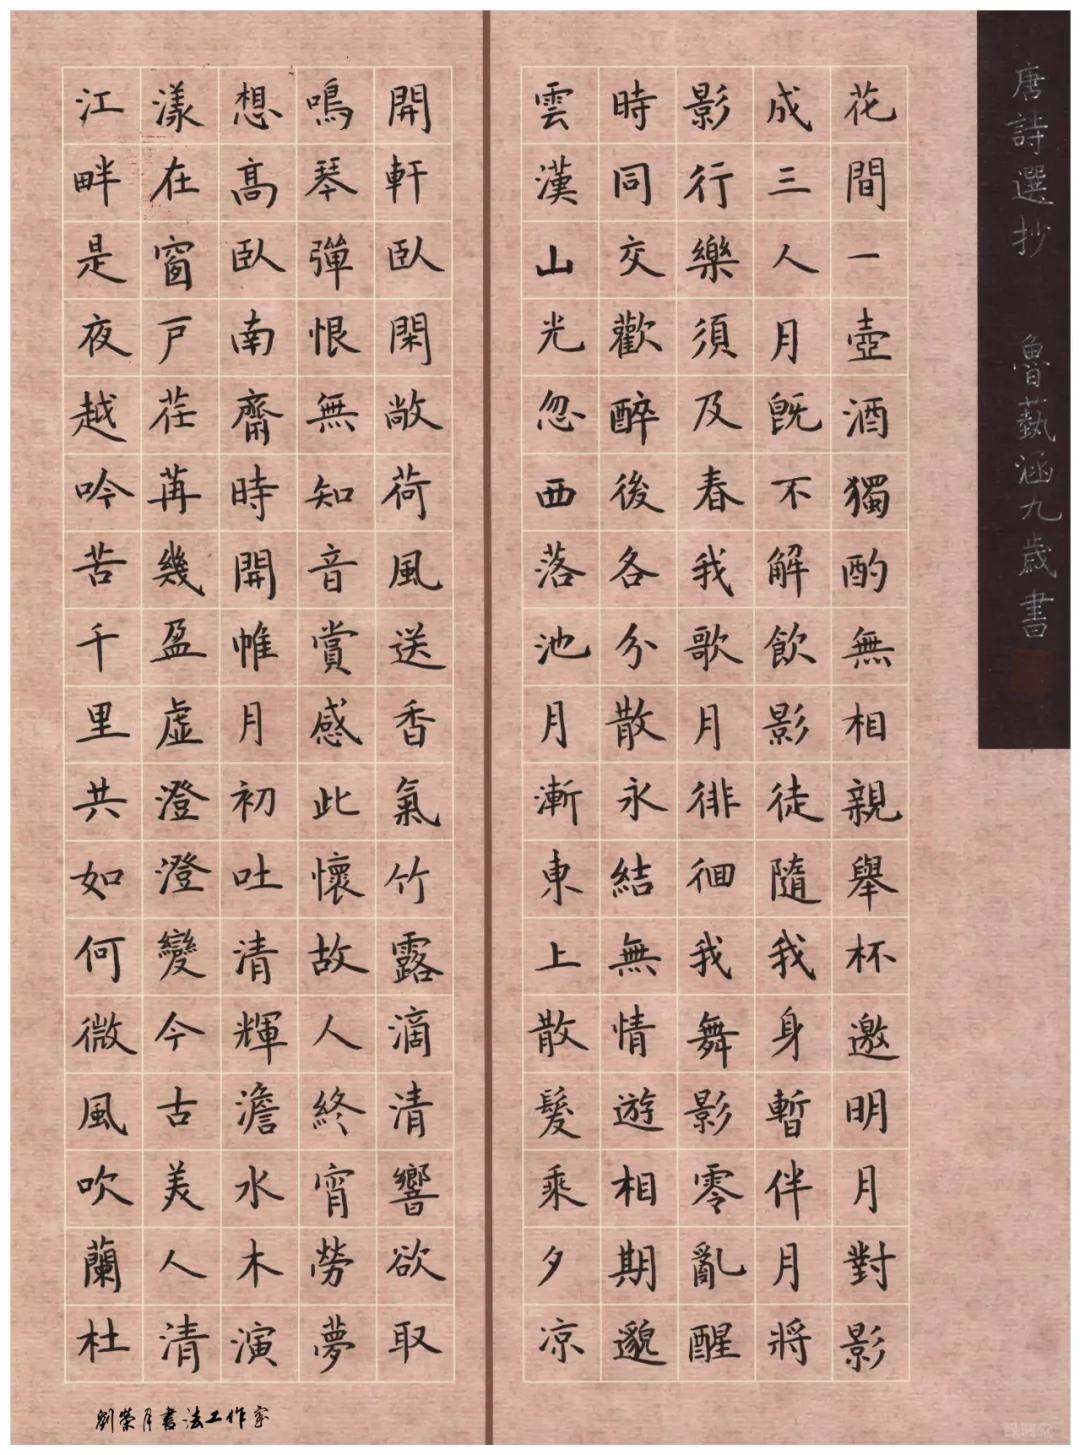 唐詩選抄 魯藝涵九歲書
花間一壺酒獨酌無相親舉杯邀明月對影
成三人月既不解飲影徒隨我身暫伴月將
影行樂須及春我歌月徘徊我舞影零亂醒
時同交歡醉後各分散永結無情遊相期邈
雲漢山光忽西落池月漸東上散髮乘夕凉
開軒臥閑敞荷風送香氣竹露滴清響欲取
鳴琴彈恨無知音賞感此懷故人終宵勞夢
想高臥南齋時開帷月初吐清輝澹水木演
漾在窗戶荏苒幾盈虛澄澄變今古美人清
江畔是夜越吟苦千里共如何微風吹蘭杜
劉榮月書法工作室